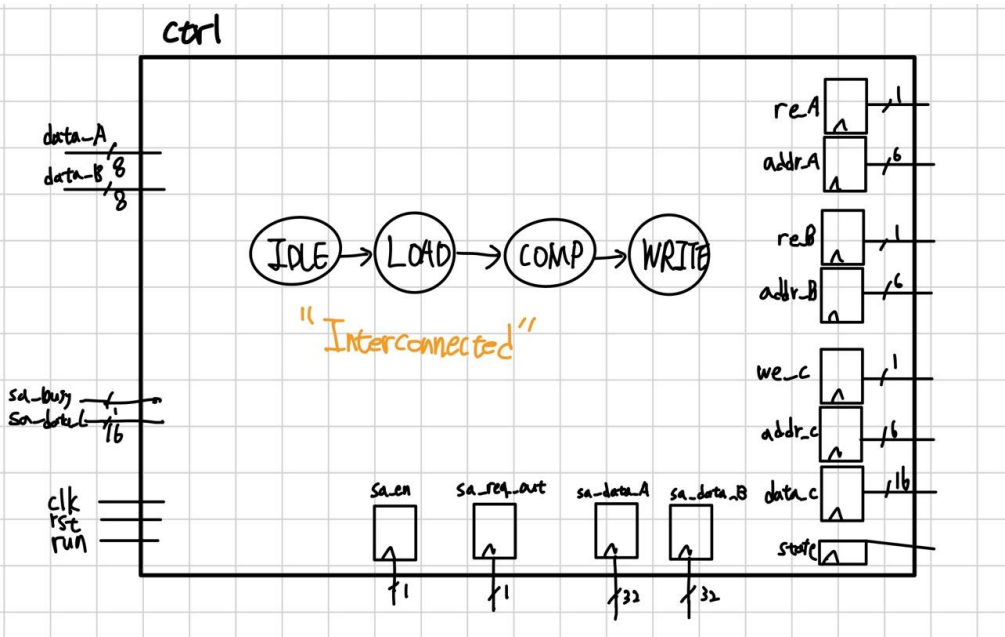 ctrl
data_A
8
data_B
8
IDLE
LOAD
COMP
WRITE
"Interconnected"
sa_busy
1
16
clk
rst
run
sa_en
1
sa_req_out
1
sa_data_A
32
sa_data_B
32
re_A
1
addr_A
6
re_B
1
addr_B
6
we_c
1
addr_c
6
data_c
16
state